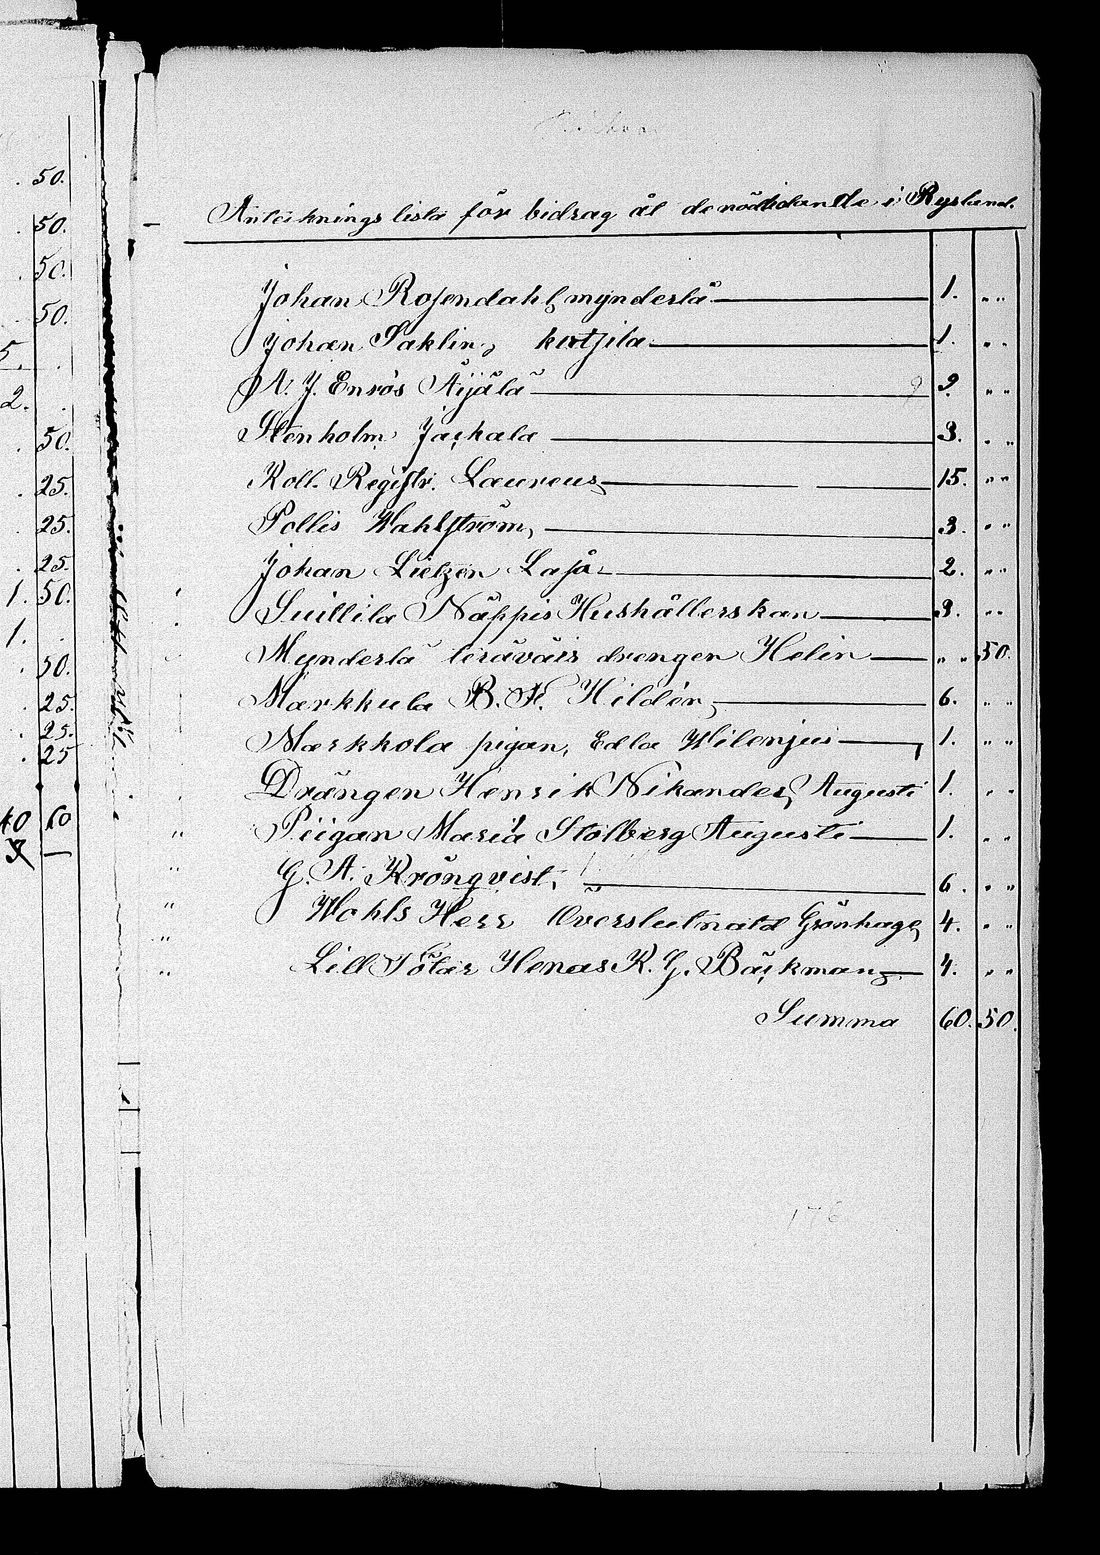 50.
50.
50.
50.
5.
2.
50.
25.
25.
25.
1. 50.
1.
50.
25.
25.
25
40 60
Antecknings lista för bidrag åt de nödlidande i Ryssland.
Johan Rosendahl, mynderlä 1. " "
Johan Saklin, kutjila 1. " "
A. J. Enros Äijälä 9. " "
Stenholm Jackala 3. " "
Koll. Registr. Laurens, 15. " "
Pollis Wahlström, 3. " "
Johan Lietzen Laja 2. " "
Suillila Näppis Hushållerskan 3. " "
Mynderlä terävärs drengen Helin " " 50.
Markkula B. F. Hildén, 6. " "
Markkola pigan, Edla Wilenjus 1. " "
Drängen Henrik Nikander, Augusti 1. " "
Piigan Maria Stolberg Augusti 1. " "
G. A. Krönqvist, 6. " "
Wohls Herr Överslutnatd Grönhage, 4. " "
Lill Sötar Henas K. G. Bäckman, 4. " "
Summa 60. 50.
176